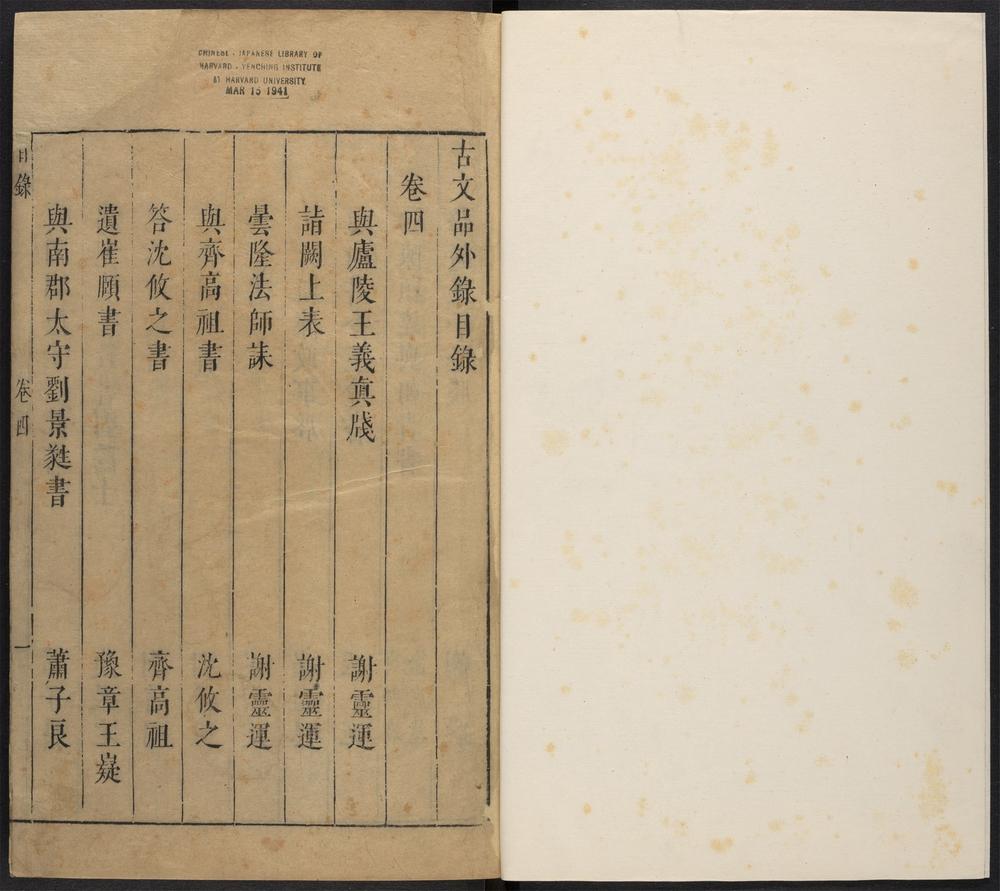 CHINESE - JAPANESE LIBRARY OF
HARVARD - YENCHING INSTITUTE
AT HARVARD UNIVERSITY
MAR 15 1941
古文品外錄目錄
卷四
與廬陵王義真牋 謝靈運
詣闕上表 謝靈運
曇隆法師誄 謝靈運
與齊高祖書 沈攸之
答沈攸之書 齊高祖
遺崔頤書 豫章王嶷
與南郡太守劉景蕤書 蕭子良
目錄 卷四 一